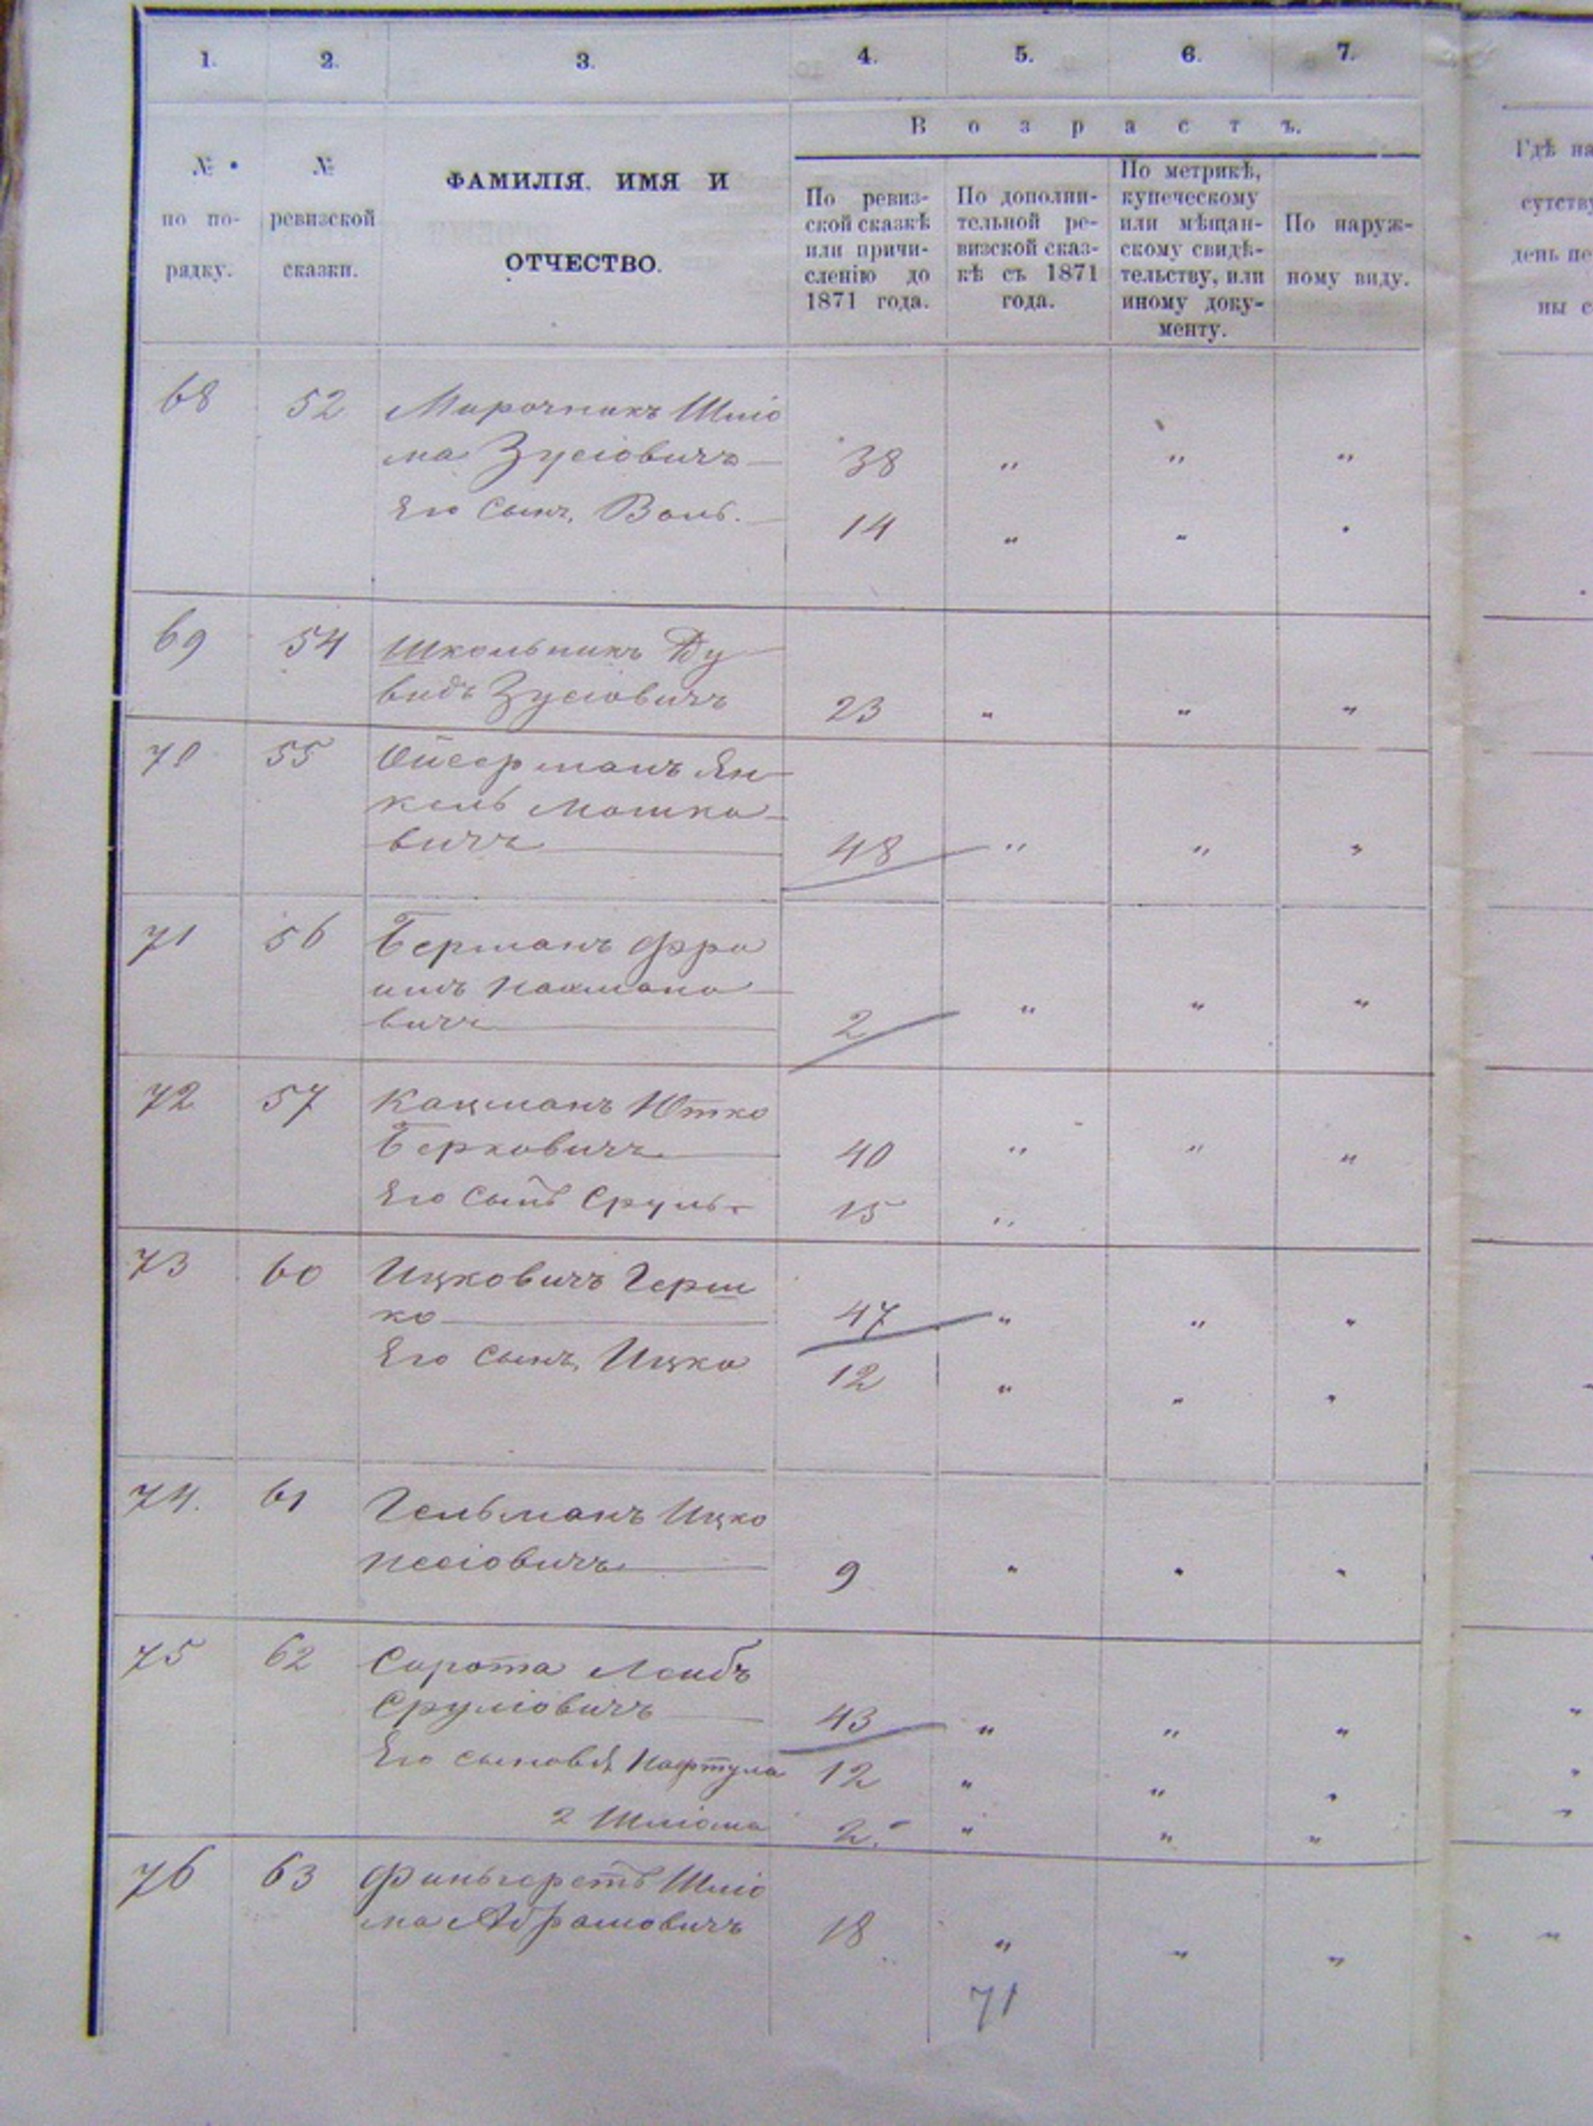 1. 2. 3. 4. 5. 6. 7.
Возрастъ.
№ по по-рядку.
№ ревизской сказки.
ФАМИЛІЯ, ИМЯ И
ОТЧЕСТВО.
По ревиз-
ской сказкѣ
или причи-
сленію до
1871 года.
По дополни-
тельной ре-
визской сказ-
кѣ съ 1871
года.
По метрикѣ,
купеческому
или мѣщан-
скому свидѣ-
тельству, или
иному доку-
менту.
По наруж-
ному виду.
Гдѣ на
сутству
день пе
ны с
68 52 Мирочникъ Шлио
ма Зусіовичъ 38 " " "
Его сынъ, Воль. 14 " " "
69 54 Школьникъ Ду
видъ Зусіовичъ 23 " " "
70 55 Ойсерманъ Ян
кель Мошко
вичъ 48 " " "
71 56 Берманъ Фро
имъ Нахмано
вичъ 2 " " "
72 57 Кацманъ Ютко
Берковичъ 40 " " "
Его сынъ Сруль 15 "
73 60 Ицковичъ Герш
ко 47 " " "
Его сынъ, Ицко 12 " " "
74. 61 Гельманъ Ицко
Песіовичъ 9 " " "
75 62 Сирота Лейбъ
Сруліовичъ 43 " " "
Его сыновья Нафтула 12 " " "
2 Шліома 2. " " "
76 63 Финьгеретъ Шліо
ма Абрамовичъ 18 " " "
71